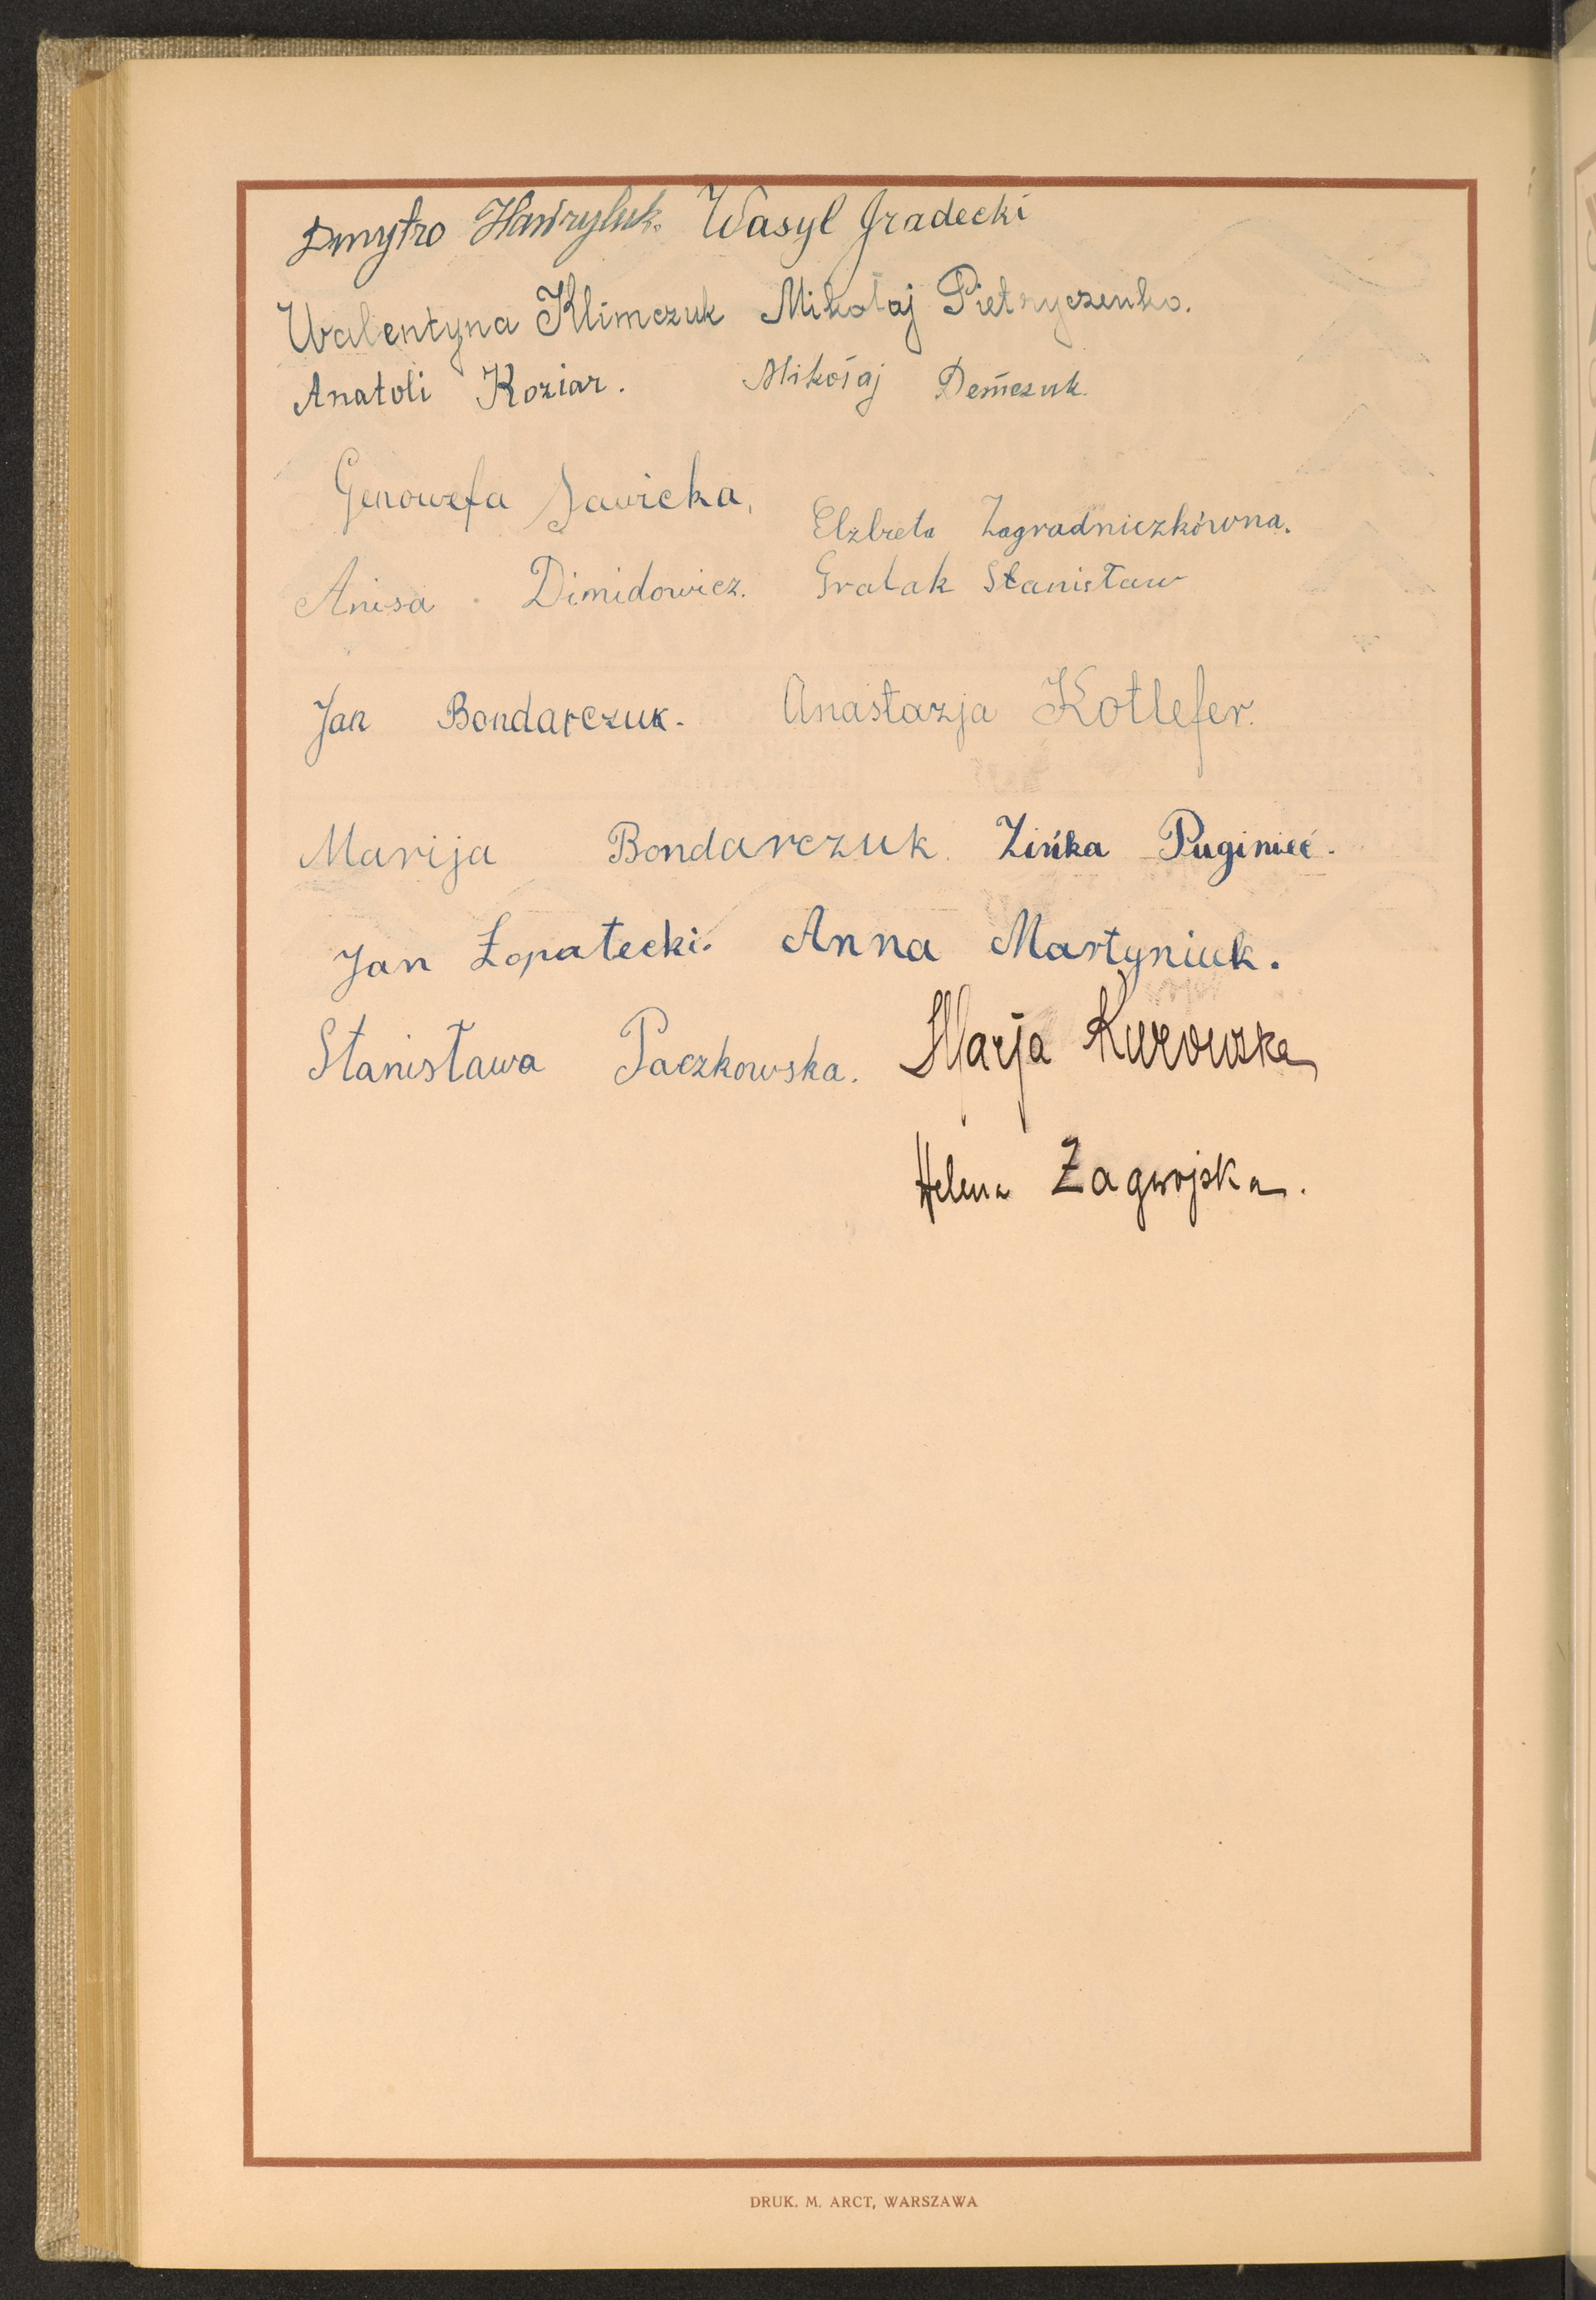 Dmytro Hawryluk. Wasyl Gradecki
Walentyna Klimczuk Mikołaj Pietryczenko.
Anatoli Koziar. Mikołaj Demczuk.
Genowefa Sawicka,
Elzbieta Zagradniczkówna.
Anisa Dimidowicz. Gralak Stanisław
Jan Bondarczuk. Anastazja Kotlefer.
Marija Bondarczuk. Zińka Puginieć.
Jan Łopatecki. Anna Martyniuk.
Stanisława Paczkowska. Marja Kurowska
Helena Zagwojska.
DRUK. M. ARCT, WARSZAWA